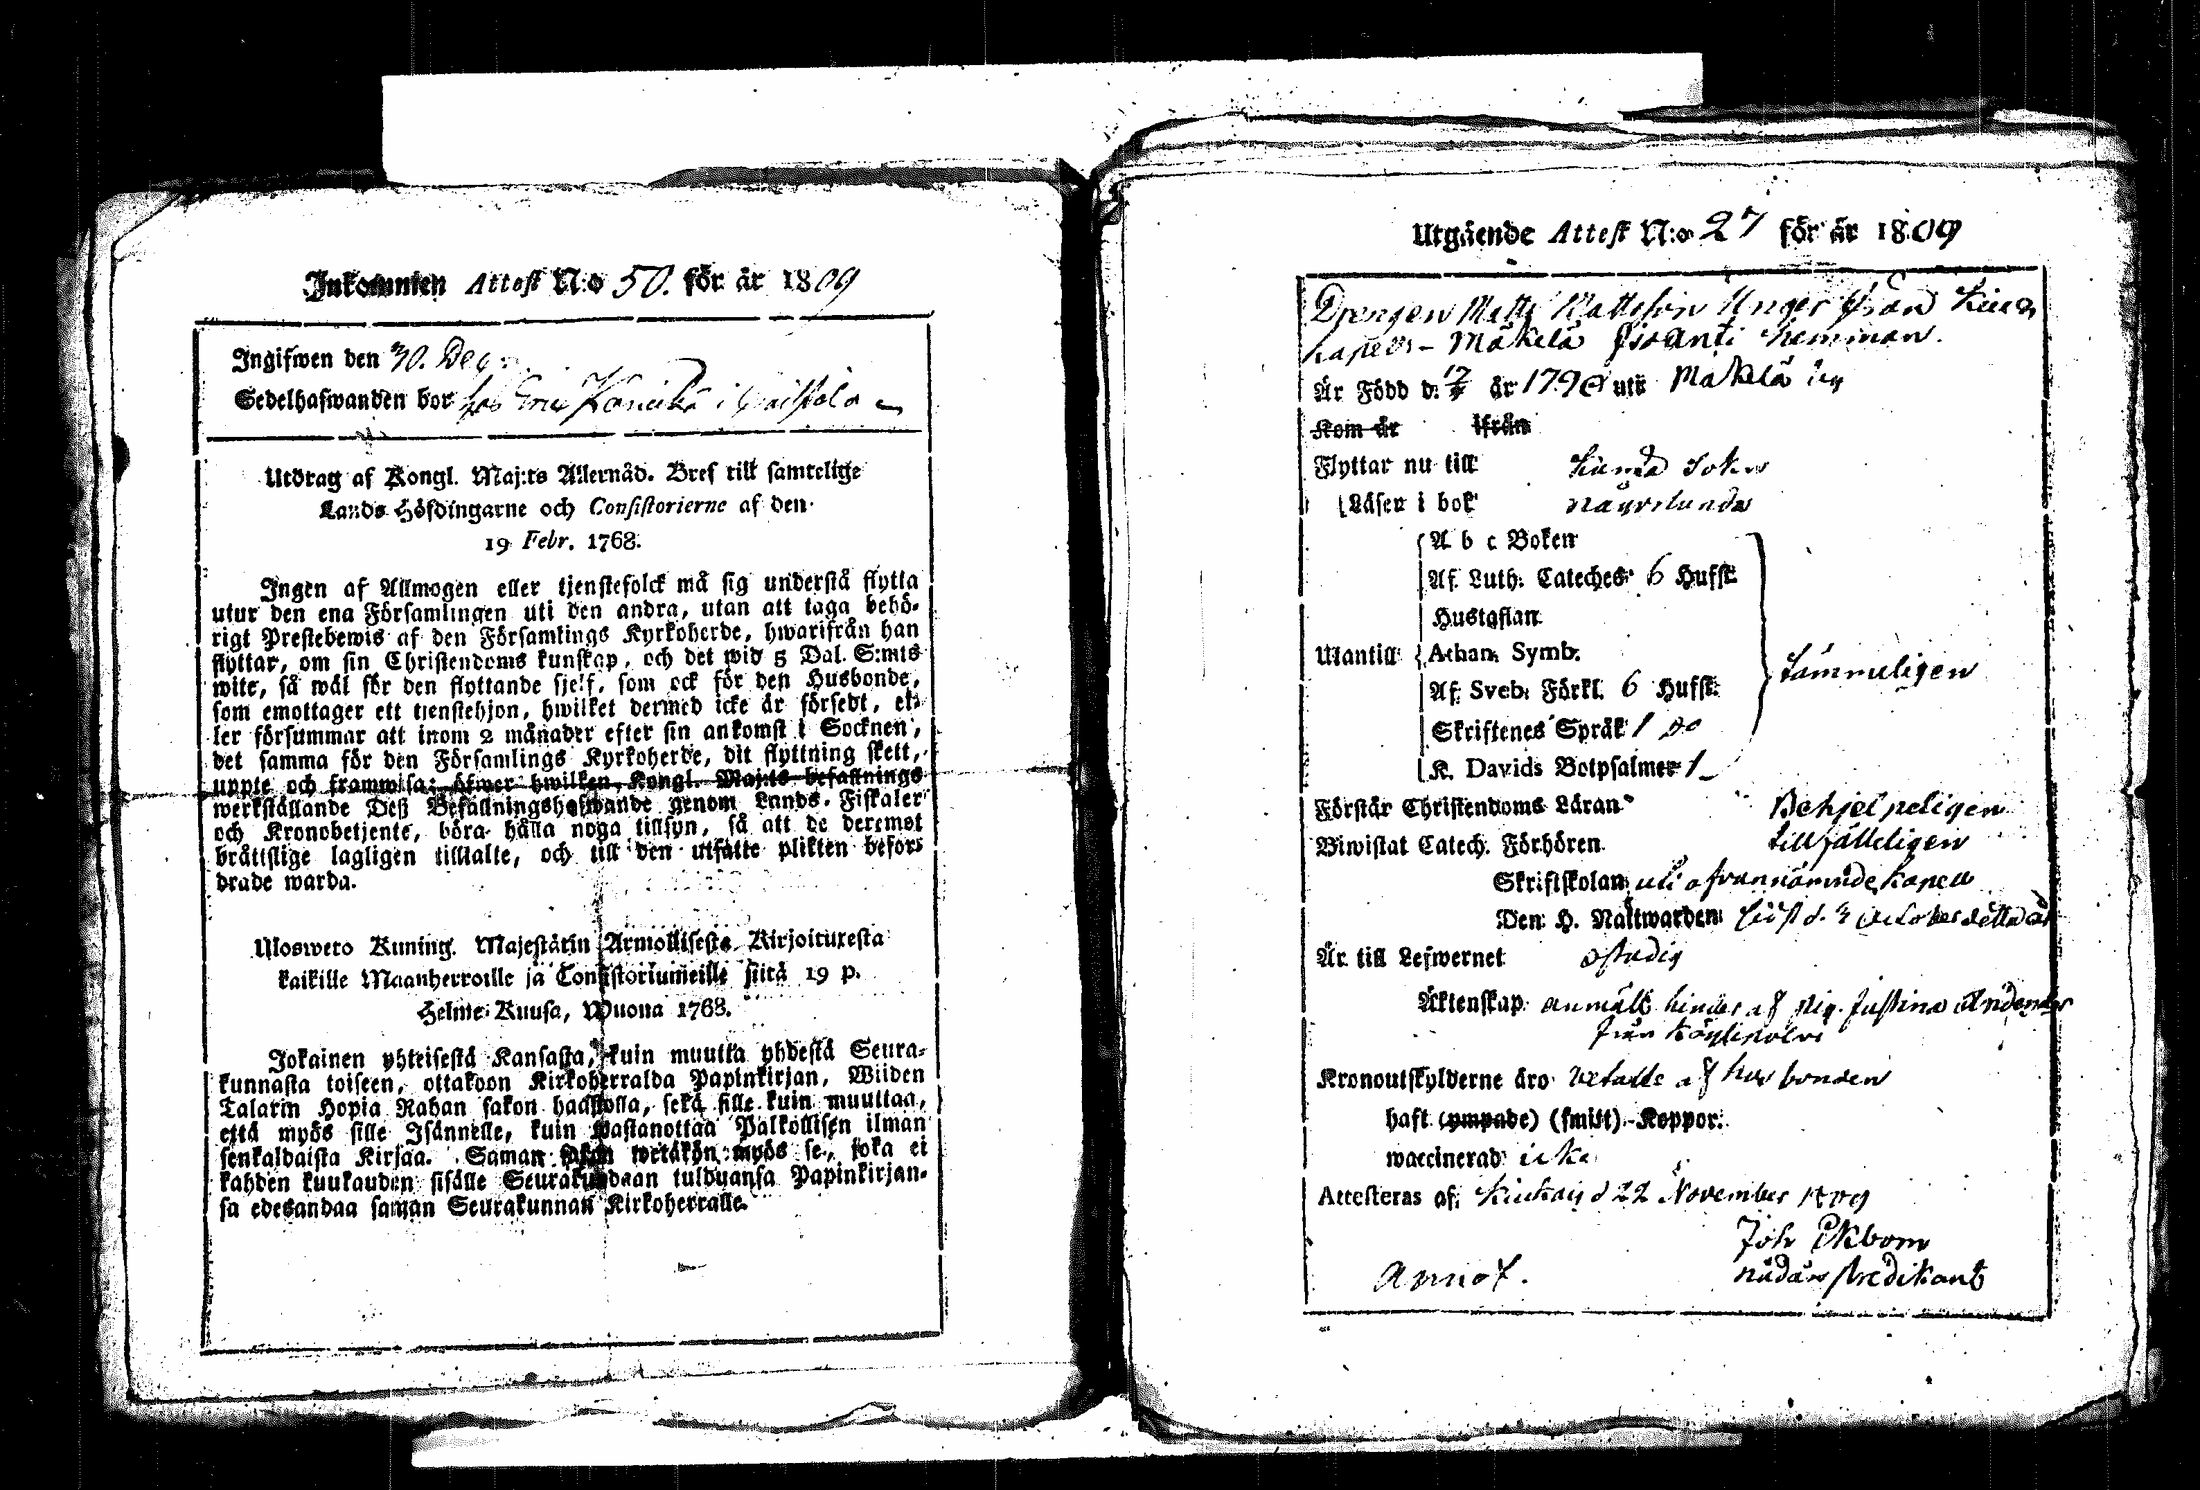 Inkommen Attest N:o 50. för år 1809
Ingifwen den 30. Dec.
Sedelhafwanden bor hos Eric i
Utdrag af Kongl. Maj:ts Allernåd. Bref till samtelige
Lands Höfdingarne och Consistorierne af den
19 Febr. 1768.
Ingen af Allmogen eller tjenstefolck må sig understå flytta
utur den ena Församlingen uti den andra, utan att taga behö-
rigt Prestebewis af den Församlings Kyrkoherde, hwarifrån han
flyttar, om sin Christendoms kunskap, och det wid 5 Dal. S:mts
wite, så wäl för den flyttande sjelf, som ock för den Husbonde,
som emottager ett tjenstehjon, hwilket dermed icke är försedt, el-
ler försummar att inom 2 månader efter sin ankomst i Socknen,
det samma för den Församlings Kyrkoherde, dit flyttning skett,
uppte och framwisa; öfwer hwilken Kongl. Maj:ts befallnings
werkställande Deß Befallningshafwande genom Lands-Fiskaler
och Kronobetjente, böra hålla noga tillsyn, så att de deremot
bråttslige lagligen tilltalte, och till den utsatte plikten befor-
drade warda.
Uloswero Kuning. Majestätin Armollisesta Kirjoituxesta
kaikille Maanherroille ja Consistoriumeille siitä 19 p.
Helme-Kuusa, Wuona 1768.
Jokainen yhteisestä Kansasta, kuin muutta yhdestä Seura-
kunnasta toiseen, ottakoon Kirkoherralda Papinkirjan, Wiiden
Talarin Hopia Rahan sakon haastolla, sekä sille kuin muuttaa,
että myös sille Isännelle, kuin wastanottaa Palkollisen ilman
senkaldaista Kirjaa. Saman sakon wetäkön myös se, joka ei
kahden kuukauden sisälle Seurakundaan tulduansa Papinkirjan-
sa edesandaa saman Seurakunnan Kirkoherralle.
Utgående Attest N:o 27 för år 1809
Drengen Matts Mattsson Unger från
Kapell- Mäkelä hemman.
Är Född d. år 179 uti Mäkelä by
Kom år ifrån
Flyttar nu till Sokn
Läsen i bok någorlunda
A b c Boken
Af Luth. Cateches 6 Hufst.
Hustaflan
Utantill Athan. Symb. tämmeligen
Af Sveb. Förkl. 6 Hufst.
Skriftenes Språk 1 do
K. Davids Botpsalmer 1
Förstår Christendoms Läran Behjelpeligen
Biwistat Catech. Förhören tillfälleligen
Skriftskolan uti ofvannämnde Kapell
Den H. Nattwarden sidst d. October detta år
Är till Lefwernet ostadig
Äktenskap anmält hinder af Pig. Justina
från
Kronoutskylderne äro betalte af husbonden
haft (ympade) (smitt)-Koppor.
waccinerad icke
Attesteras af, d 22 November 1809
Joh Ekbom
nådårs predikant
Annot.